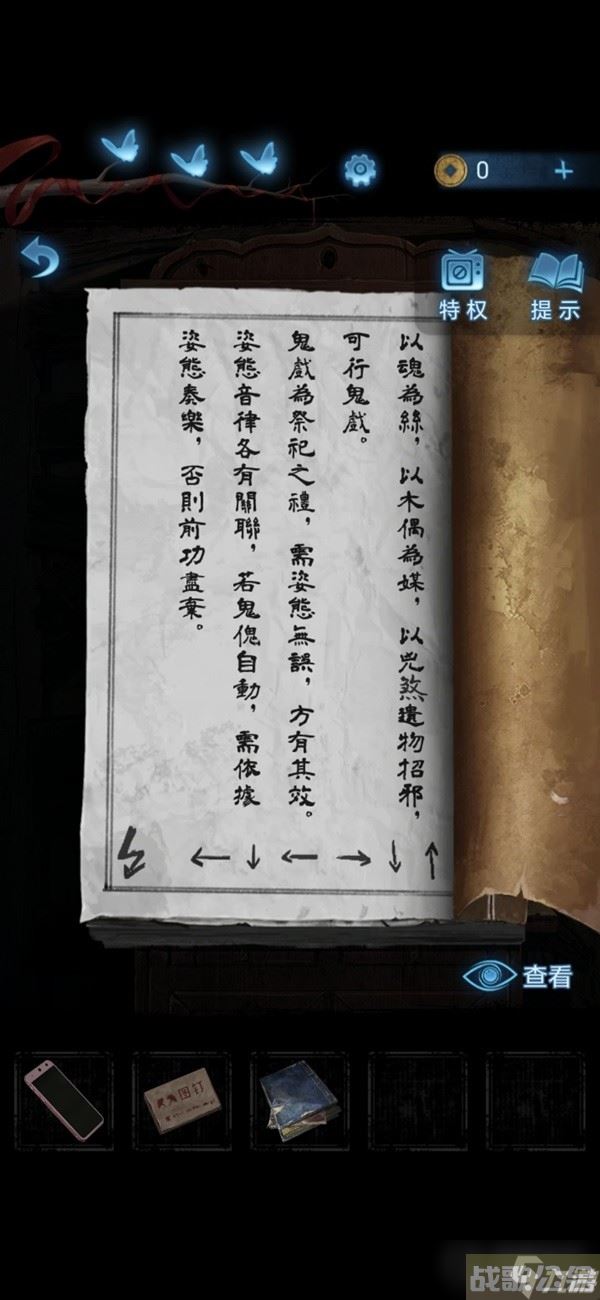 0
特权
提示
以魂為絲，以木偶為媒，以兇煞遺物招邪，
可行鬼戲。
鬼戲為祭祀之禮，需姿態無誤，方有其效。
姿態音律各有關聯，若鬼傀自動，需依據
姿態奏樂，否則前功盡棄。
↑↓→←↓←
查看
图钉
战歌